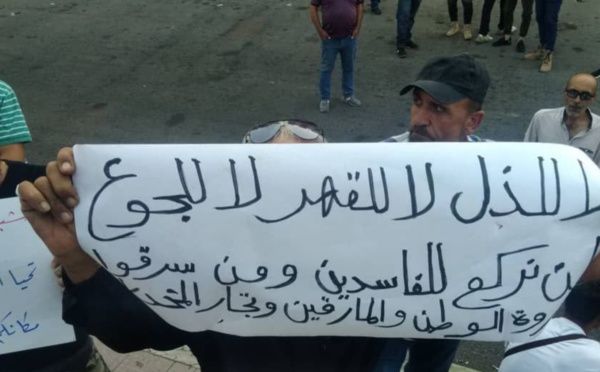 لا للذل لا للقهر لا للجوع
لن نركع للفاسدين ومن سرقوا
ثروة الوطن والمارقين وتجار المخد
تحيا